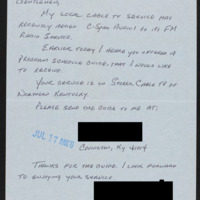 Gentlemen,
My local cable TV service has
recently added C-Span Audio to its FM
Radio Service.
Earlier today I heard you offered a
program schedule guide, that I would like
to receive.
Your service is on Storer Cable TV of
Northern Kentucky.
Please send the guide to me at:
JUL 17
Covington, Ky 41014
Thanks for the guide. I look forward
to enjoying your service.